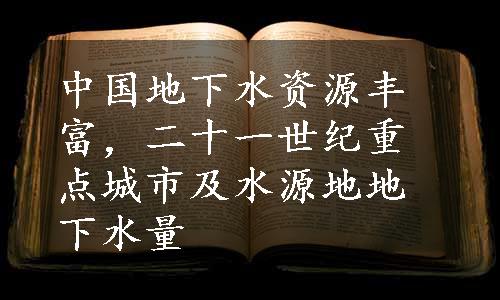 中国地下水资源丰
富，二十一世纪重
点城市及水源地地
下水量